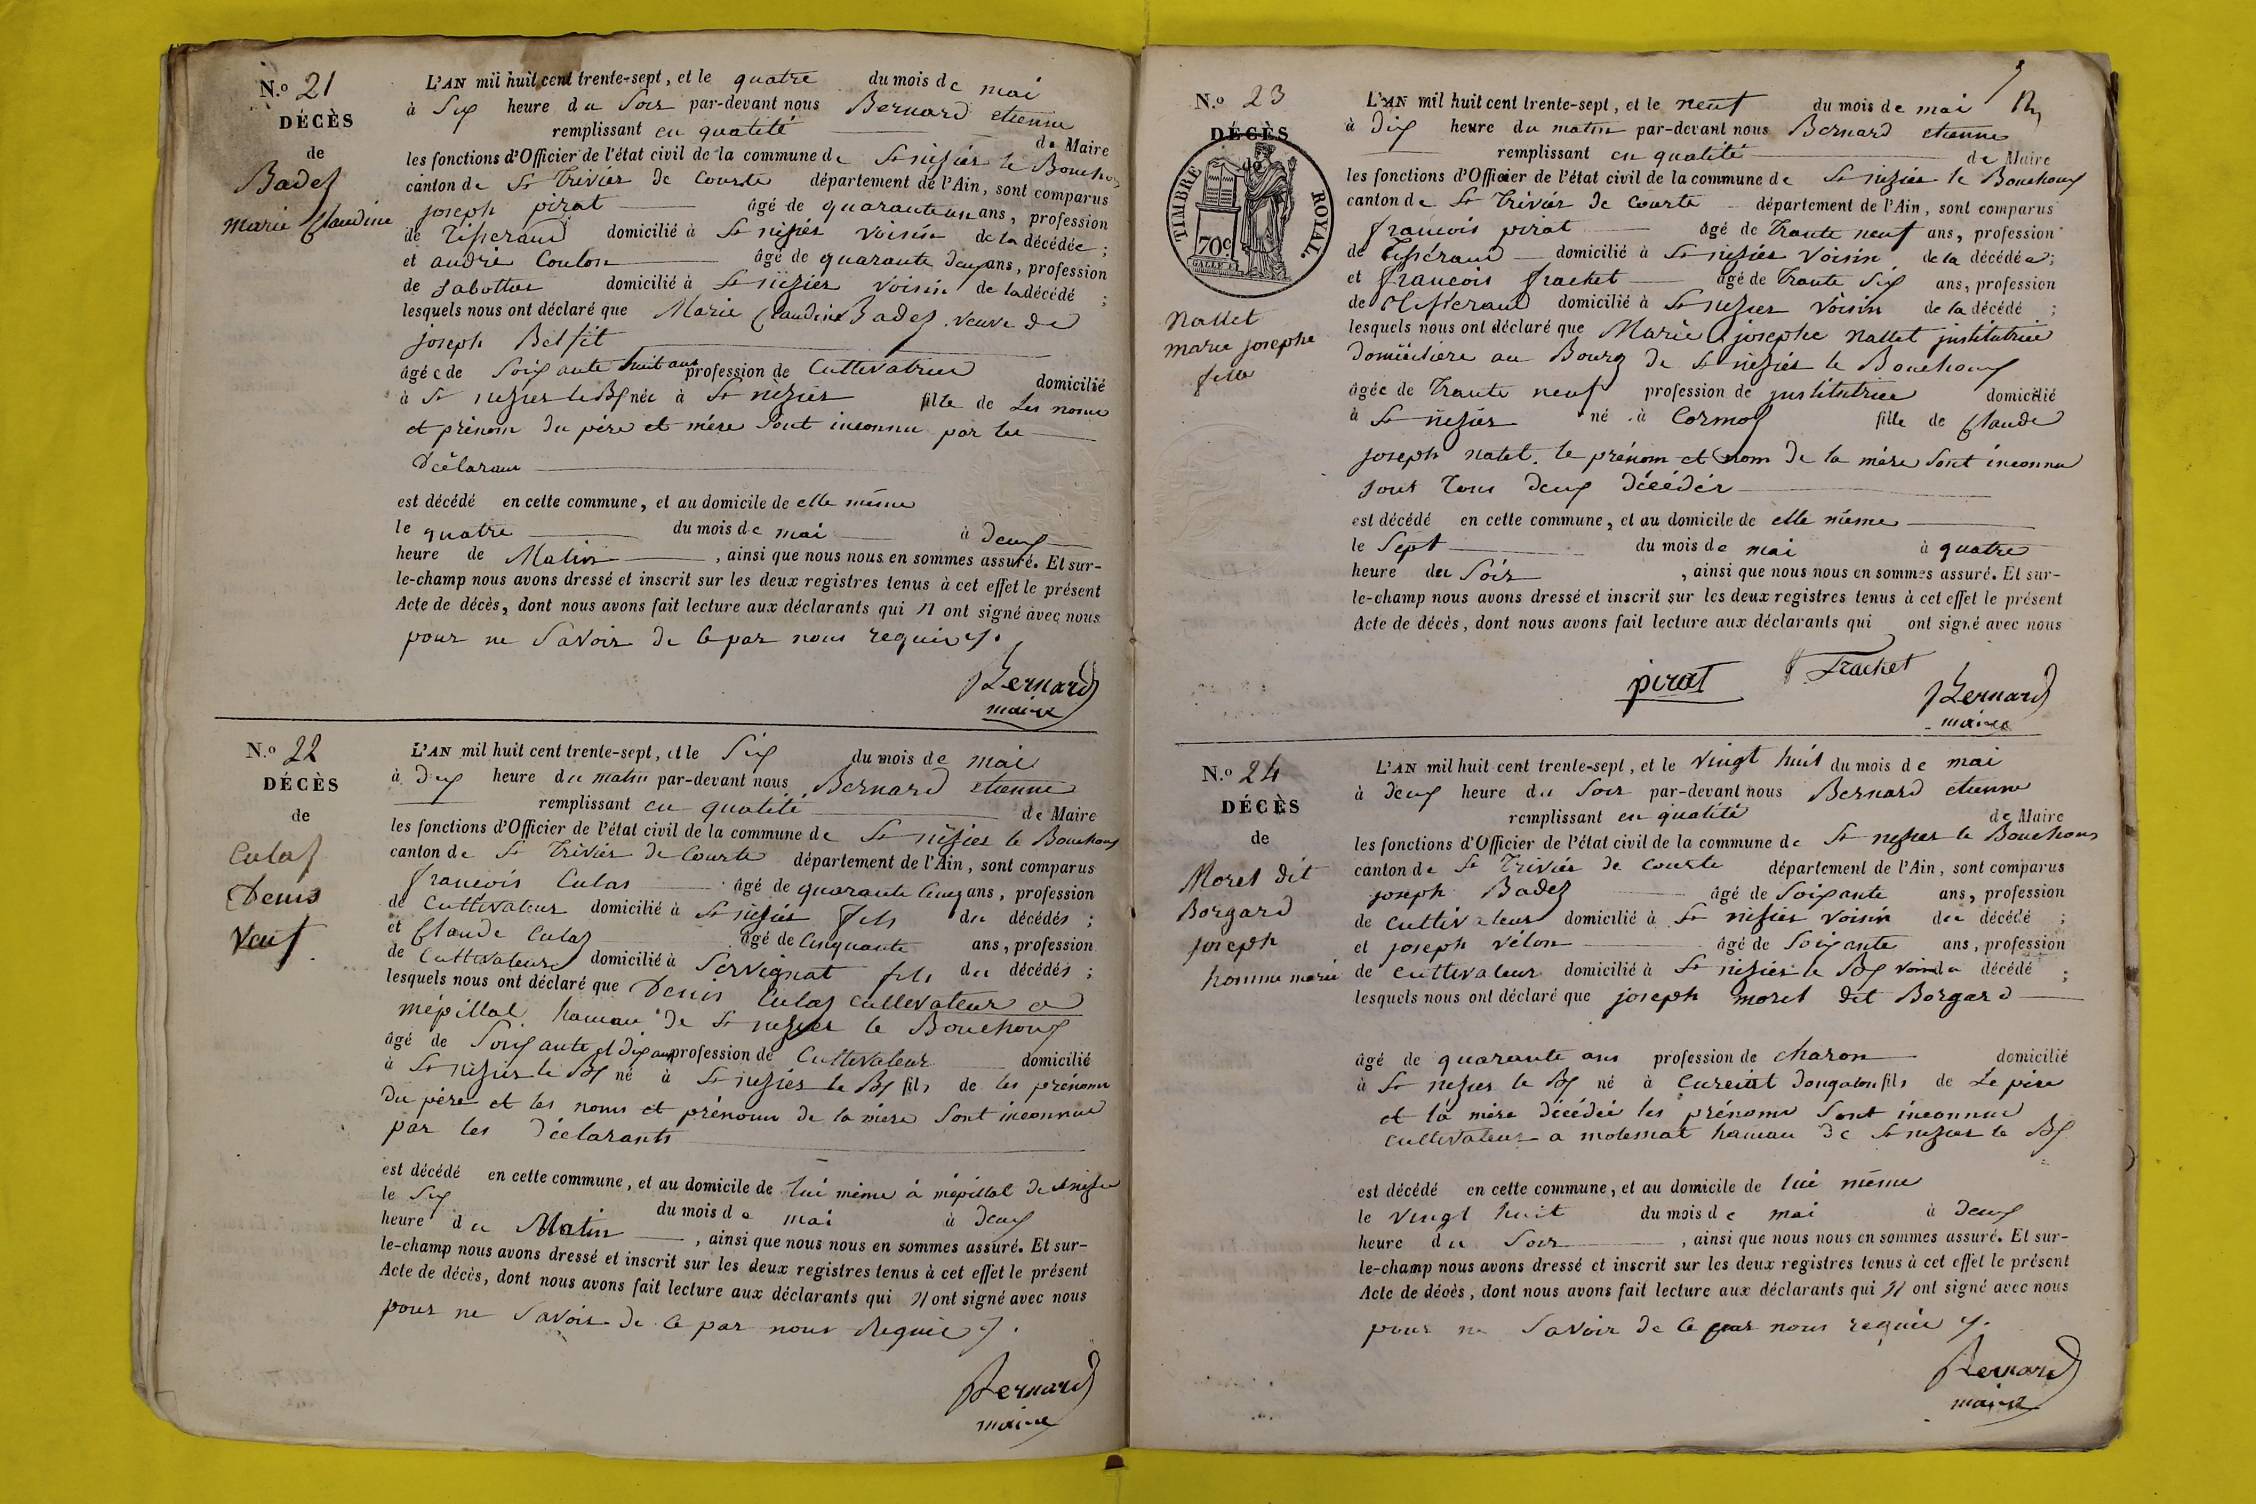 N.º 21
DÉCÈS
de
Badez
marie Claudine
L'AN mil huit cent trente-sept, et le quatre du mois de mai
à Six heure du Soir par-devant nous Bernard etienne
remplissant en qualité de Maire
les fonctions d'Officier de l'état civil de la commune de St nizier le Bouchou
canton de St Trivier de Courte département de l'Ain, sont comparus
joseph pirat âgé de quarante un ans, profession
de Tisserand domicilié à St nizier voisin de la décédée;
et andré Coulon âgé de quarante deux ans, profession
de Sabottier domicilié à St nizier voisin de la décédé ;
lesquels nous ont déclaré que Marie Claudine Badez veuve de
joseph
âgée de Soixante huit ans profession de Cultivatrice domicilié
à St nizier le Bx née à St nizier fille de Les noms
et prénom du père et mére Sont inconnu par les
déclarans
est décédé en cette commune, et au domicile de elle même
le quatre du mois de mai à deux
heure de Matin , ainsi que nous nous en sommes assuré. Et sur-
le-champ nous avons dressé et inscrit sur les deux registres tenus à cet effet le présent
Acte de décès, dont nous avons fait lecture aux déclarants qui n ont signé avec nous
pour ne Savoir de ce par nous requis
Bernard
maire
N.º 22
DÉCÈS
de
Culaz
Denis
Veuf
L'AN mil huit cent trente-sept, et le Six du mois de mai
à dix heure du matin par-devant nous Bernard etienne
remplissant en qualité de Maire
les fonctions d'Officier de l'état civil de la commune de St nizier le Bouchoux
canton de St Trivier de Courte département de l'Ain, sont comparus
francois Culas âgé de quarante Cinq ans, profession
de Cultivateur domicilié à St nizier fils du décédés ;
et Claude Culaz âgé de Cinquante ans, profession
de Cultivateur domicilié à Servignat fils du décédés ;
lesquels nous ont déclaré que Denis Culaz cultivateur a
mépillat hamau de St nizier le Bouchoux
âgé de Soixante et dix ans profession de Cultivateur domicilié
à St nizier le Bx né à St nizier le Bx fils de les prénoms
du père et les noms et prénoms de la mère Sont inconnus
par les déclarants
est décédé en cette commune, et au domicile de lui même à mépillat de St nizier
le Six du mois de mai à deux
heure du Matin , ainsi que nous nous en sommes assuré. Et sur-
le-champ nous avons dressé et inscrit sur les deux registres tenus à cet effet le présent
Acte de décès, dont nous avons fait lecture aux déclarants qui n ont signé avec nous
pour ne Savoir de ce par nous Requis
Bernard
maire
N.º 23
DÉCÈS
de
TIMBRE ROYAL.
70c
Nallet
marie josephe
fille
L'AN mil huit cent trente-sept, et le neuf du mois de mai
à dix heure du matin par-devant nous Bernard etienne
remplissant en qualité de Maire
les fonctions d'Officier de l'état civil de la commune de St nizier le Bouchoux
canton de St Trivier de Courte département de l'Ain, sont comparus
francois pirat âgé de Trante neuf ans, profession
de Tisserand domicilié à St nizier Voisin de la décédée;
et francois frachet âgé de Trante Six ans, profession
de Tisserand domicilié à St nizier Voisin de la décédé ;
lesquels nous ont déclaré que Marie josephe nallet justitutrice
domiciliere au Bourg de St nizier le Bouchoux
âgée de Trante neuf profession de justitutrice domicilié
à St nizier né à Cormoz fille de Claude
joseph natel. le prénom et nom de la mére Sont inconnu
Sont Tous deux décédér
est décédé en cette commune, et au domicile de elle même
le Sept du mois de mai à quatre
heure du Soir , ainsi que nous nous en sommes assuré. Et sur-
le-champ nous avons dressé et inscrit sur les deux registres tenus à cet effet le présent
Acte de décès, dont nous avons fait lecture aux déclarants qui ont signé avec nous
pirat f Frachet
Bernard
maire
N.º 24
DÉCÈS
de
Morel dit
Borgard
joseph
homme marié
L'AN mil huit cent trente-sept, et le vingt huit du mois de mai
à deux heure du Soir par-devant nous Bernard etienne
remplissant en qualité de Maire
les fonctions d'Officier de l'état civil de la commune de St nizier le Bouchoux
canton de St Trivier de Courte département de l'Ain, sont comparus
joseph Badez âgé de Soixante ans, profession
de cultivateur domicilié à St nizier voisin du décédé ;
et joseph vélon âgé de Soixante ans, profession
de cultivateur domicilié à St nizier le Bx voisin du décédé ;
lesquels nous ont déclaré que joseph morel dit Borgard
âgé de quarante ans profession de charon domicilié
à St nizier le Bx né à Cureiat dongalon fils de Le père
et la mère décédés les prénoms Sont inconnue
cultivateur a molemat hamau de St nizier le Bx
est décédé en cette commune, et au domicile de lui même
le vingt huit du mois de mai à deux
heure du Soir , ainsi que nous nous en sommes assuré. Et sur-
le-champ nous avons dressé et inscrit sur les deux registres tenus à cet effet le présent
Acte de décès, dont nous avons fait lecture aux déclarants qui n ont signé avec nous
pour ne Savoir de ce par nous requis
Bernard
maire